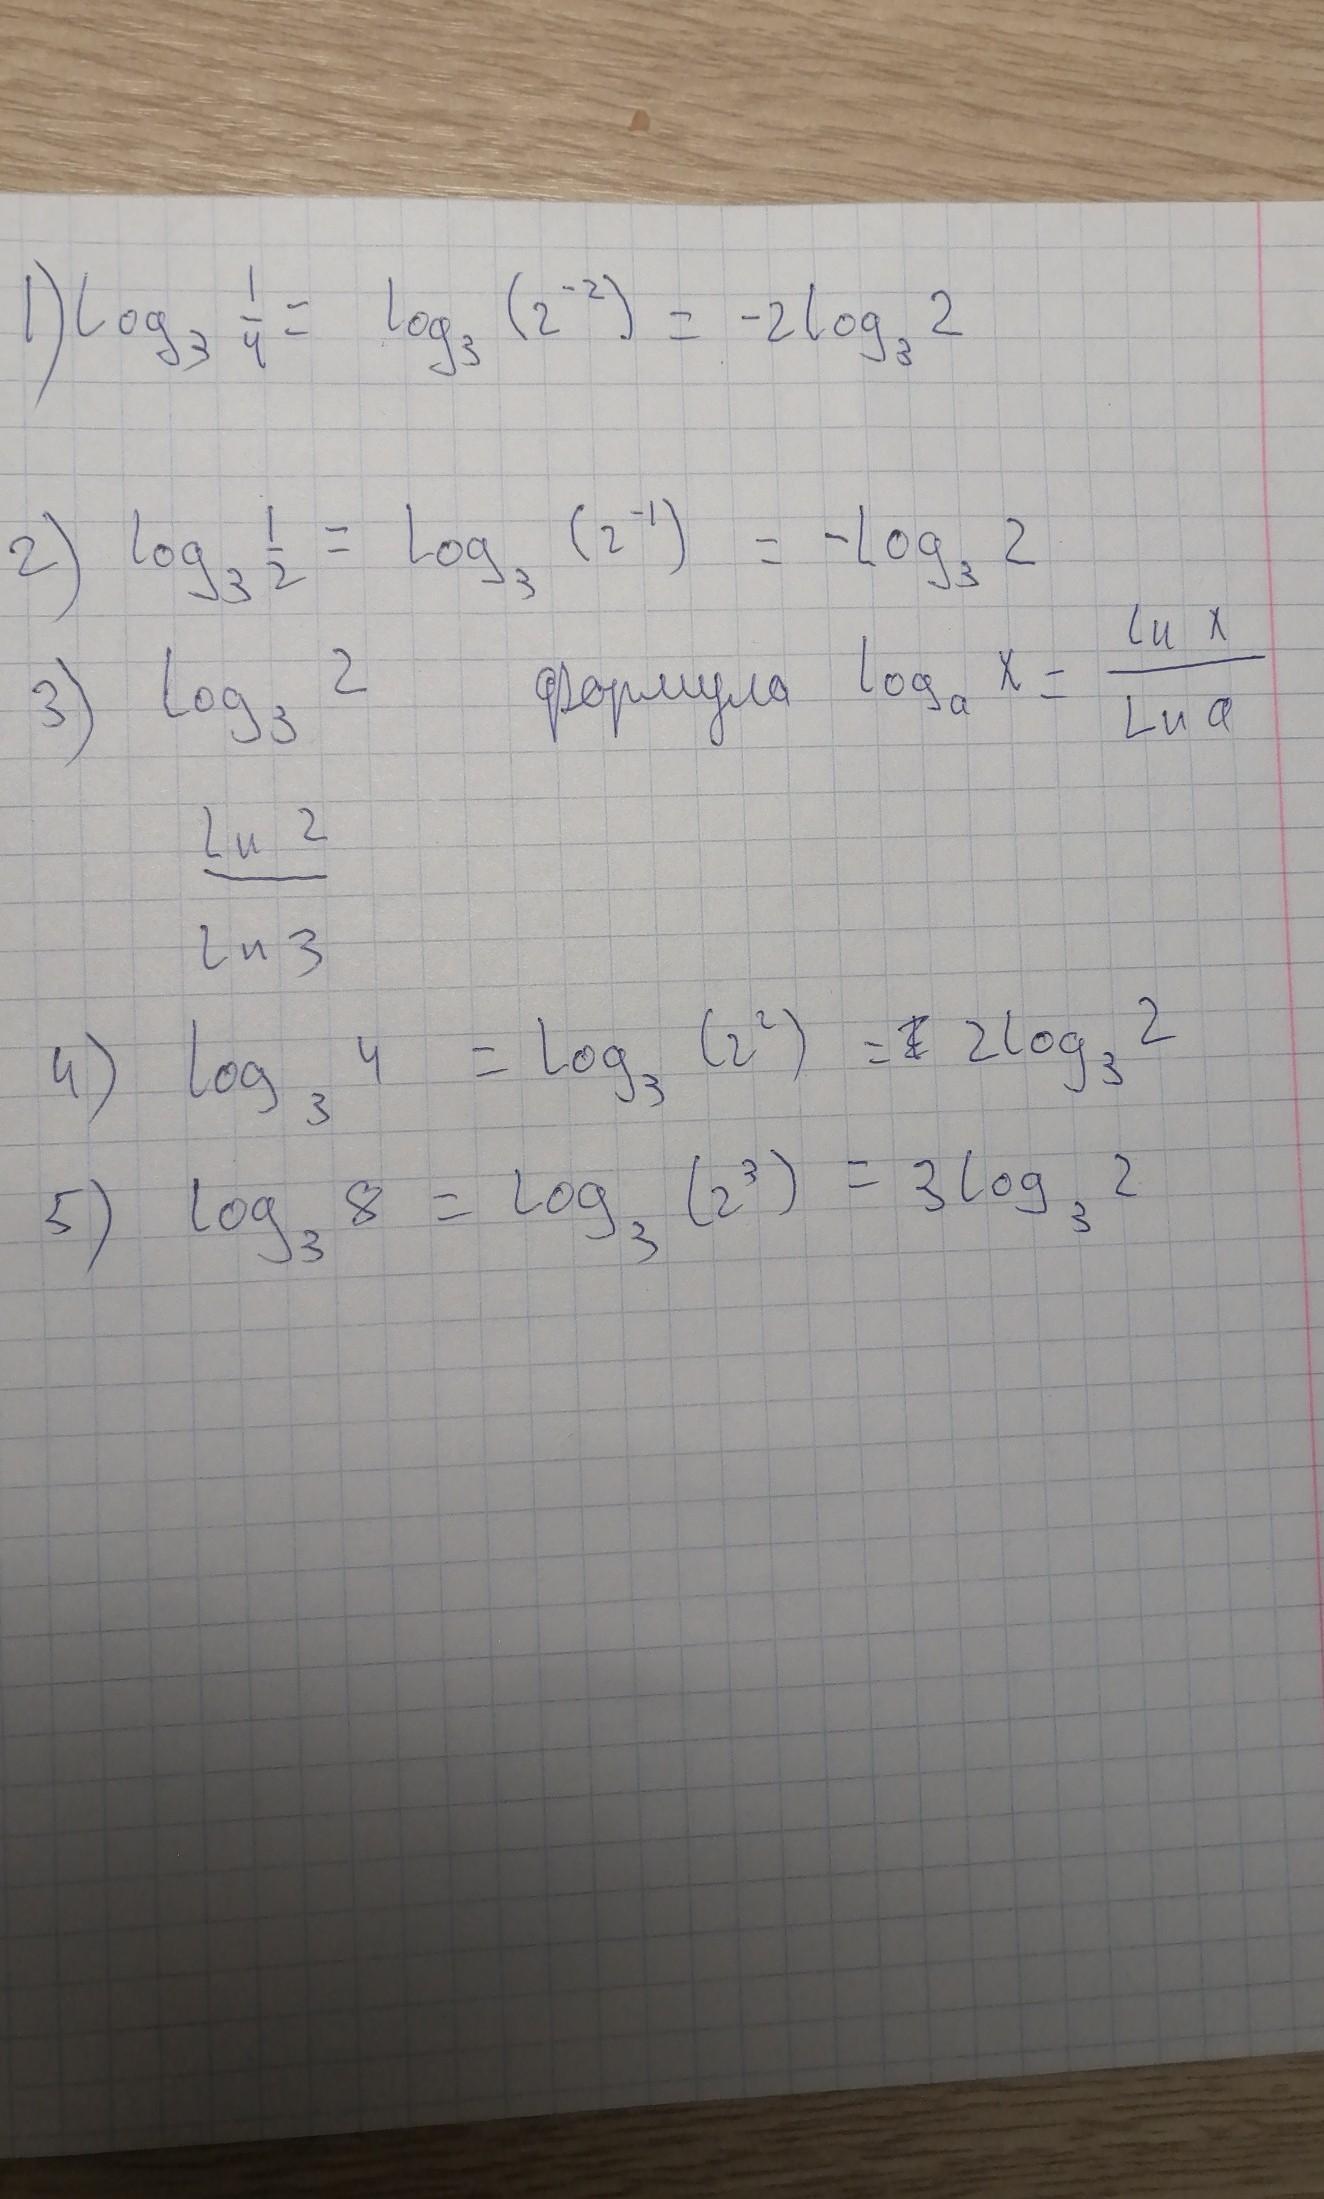 1) log₃ 1/4 = log₃ (2⁻²) = -2log₃ 2
2) log₃ 1/2 = log₃ (2⁻¹) = -log₃ 2
3) log₃ 2 формула logₐ x = ln x / ln a
ln 2 / ln 3
4) log₃ 4 = log₃ (2²) = 2log₃ 2
5) log₃ 8 = log₃ (2³) = 3log₃ 2